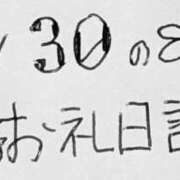 30の
お礼日